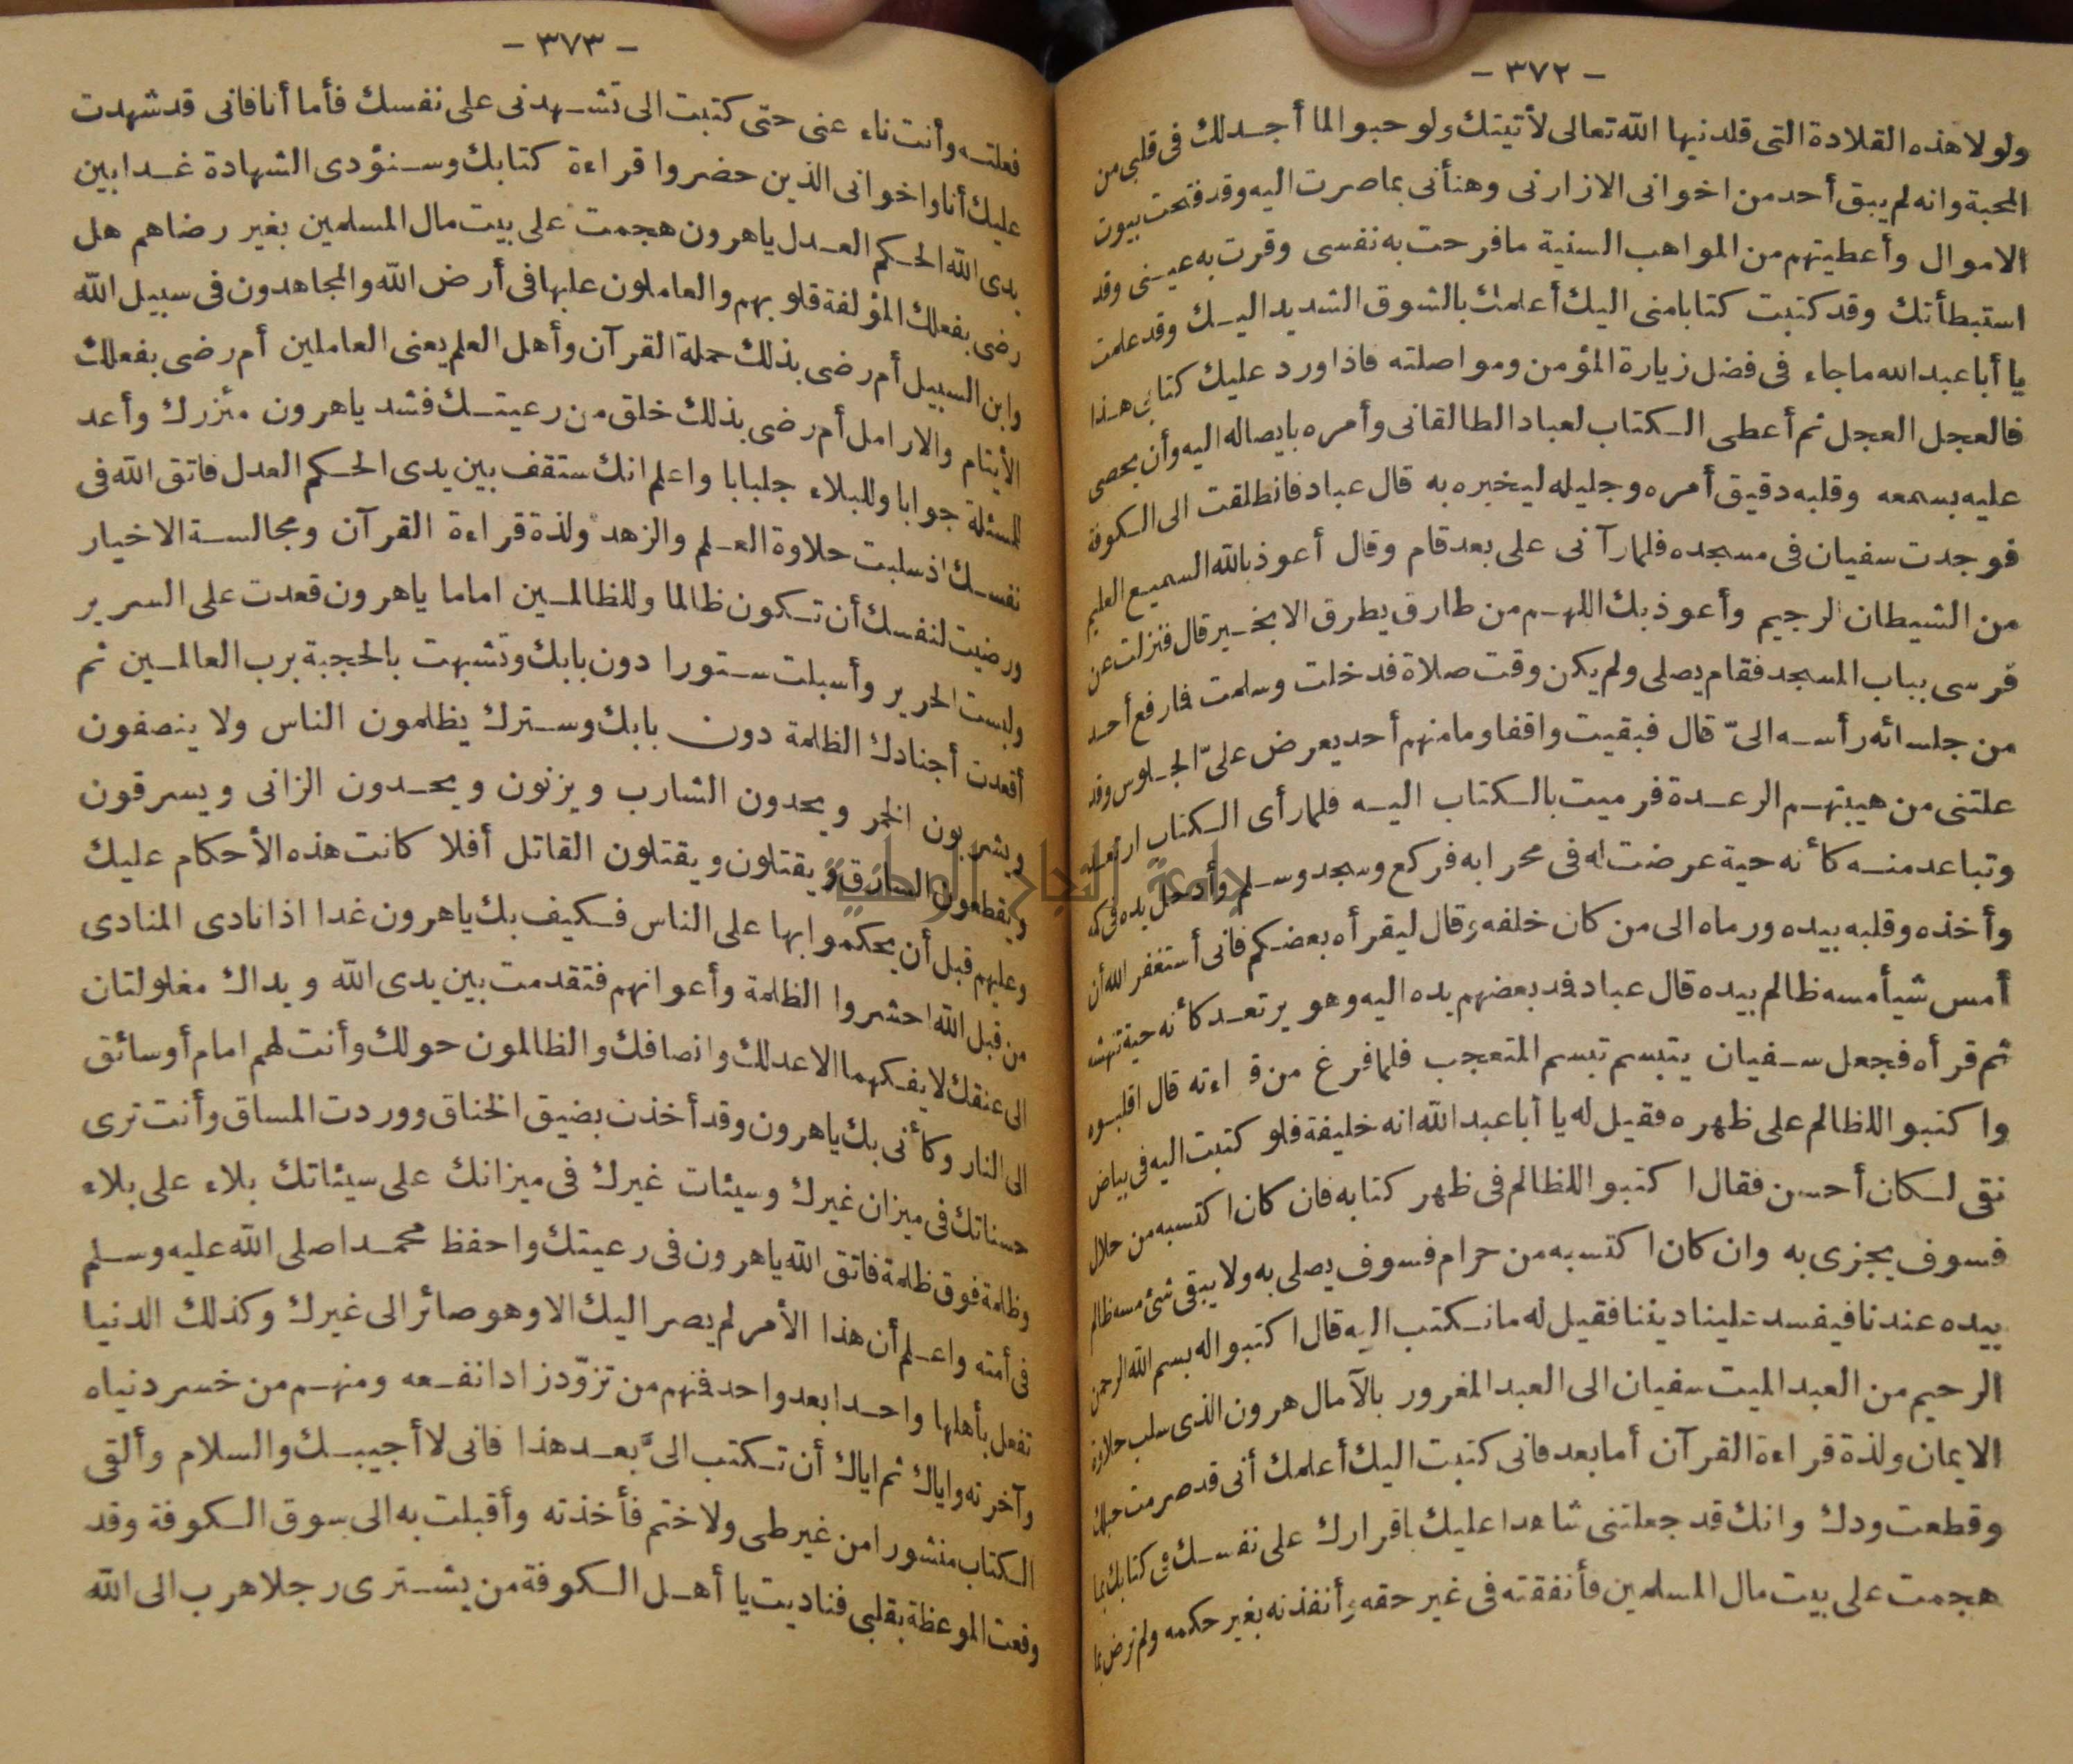 - ٣٧٢ -
ولولا هذه القلادة التى قلدنيها الله تعالى لأتيتك ولو حبوا لما أجد لك فى قلبى من
المحبة وانه لم يبق أحد من اخوانى الا زارنى وهنأنى بما صرت اليه وقد فتحت بيوت
الاموال وأعطيتهم من المواهب السنية ما فرحت به نفسى وقرت به عينى وقد
استبطأتك وقد كتبت كتابا منى اليك أعلمك بالشوق الشديد اليك وقد علمت
يا أبا عبد الله ما جاء فى فضل زيارة المؤمن ومواصلته فاذا ورد عليك كتابى هذا
فالعجل العجل ثم أعطى الكتاب لعباد الطالقانى وأمره بايصاله اليه وأن يحصى
عليه بسمعه وقلبه دقيق أمره وجليله ليخبره به قال عباد فانطلقت الى الكوفة
فوجدت سفيان فى مسجده فلما رآنى على بعد قام وقال أعوذ بالله السميع العليم
من الشيطان الرجيم وأعوذ بك اللهم من طارق يطرق الا بخير قال فنزلت عن
فرسى بباب المسجد فقام يصلى ولم يكن وقت صلاة فدخلت وسلمت فما رفع أحد
من جلسائه رأسه الىّ قال فبقيت واقفا وما منهم أحد يعرض علىّ الجلوس وقد
علتنى من هيبتهم الرعدة فرميت بالكتاب اليه فلما رأى الكتاب ارتعد
وتباعد منه كأنه حية عرضت له فى محرابه فركع وسجد وسلم وأدخل يده فى كمه
وأخذه وقلبه بيده ورماه الى من كان خلفه وقال ليقرأه بعضكم فانى أستغفر الله أن
أمس شيأ مسه ظالم بيده قال عباد فمد بعضهم يده اليه وهو يرتعد كأنه حية تنهشه
ثم قرأه فجعل سفيان يتبسم تبسم المتعجب فلما فرغ من قراءته قال اقلبوه
واكتبوا للظالم على ظهره فقيل له يا أبا عبد الله انه خليفة فلو كتبت اليه فى بياض
نقى لكان أحسن فقال اكتبوا للظالم فى ظهر كتابه فان كان اكتسبه من حلال
فسوف يجزى به وان كان اكتسبه من حرام فسوف يصلى به ولا يبقى شئ مسه ظالم
بيده عندنا فيفسد علينا ديننا فقيل له ما نكتب اليه قال اكتبوا له بسم الله الرحمن
الرحيم من العبد الميت سفيان الى العبد المغرور بالآمال هرون الذى سلب حلاوة
الايمان ولذة قراءة القرآن أما بعد فانى كتبت اليك أعلمك أنى قد صرمت حبلك
وقطعت ودك وانك قد جعلتنى شاهدا عليك باقرارك على نفسك فى كتابك بما
هجمت على بيت مال المسلمين فأنفقته فى غير حقه وأنفذته بغير حكمه ولم ترض بما
- ٣٧٣ -
فعلته وأنت ناء عنى حتى كتبت الى تشهدنى على نفسك فأما أنا فانى قد شهدت
عليك أنا واخوانى الذين حضروا قراءة كتابك وسنؤدى الشهادة غدا بين
يدى الله الحكم العدل يا هرون هجمت على بيت مال المسلمين بغير رضاهم هل
رضى بفعلك المؤلفة قلوبهم والعاملون عليها فى أرض الله والمجاهدون فى سبيل الله
وابن السبيل أم رضى بذلك حملة القرآن وأهل العلم يعنى العاملين أم رضى بفعلك
الأيتام والارامل أم رضى بذلك خلق من رعيتك فشد يا هرون مئزرك وأعد
للمسئلة جوابا وللبلاء جلبابا واعلم انك ستقف بين يدى الحكم العدل فاتق الله فى
نفسك اذ سلبت حلاوة العلم والزهد ولذة قراءة القرآن ومجالسة الاخيار
ورضيت لنفسك أن تكون ظالما وللظالمين اماما يا هرون قعدت على السرير
ولبست الحرير وأسبلت ستورا دون بابك وتشبهت بالحجبة برب العالمين ثم
أقعدت أجنادك الظلمة دون بابك وسترك يظلمون الناس ولا ينصفون
ويشربون الخمر ويحدون الشارب ويزنون ويحدون الزانى ويسرقون
ويقطعون السارق ويقتلون ويقتلون القاتل أفلا كانت هذه الأحكام عليك
وعليهم قبل أن يحكموا بها على الناس فكيف بك يا هرون غدا اذا نادى المنادى
من قبل الله احشروا الظلمة وأعوانهم فتقدمت بين يدى الله ويداك مغلولتان
الى عنقك لا يفكهما الا عدلك وانصافك والظالمون حولك وأنت لهم امام أو سائق
الى النار وكأنى بك يا هرون وقد أخذت بضيق الخناق ووردت المساق وأنت ترى
حسناتك فى ميزان غيرك وسيئات غيرك فى ميزانك على سيئاتك بلاء على بلاء
وظلمة فوق ظلمة فاتق الله يا هرون فى رعيتك واحفظ محمدا صلى الله عليه وسلم
فى أمته واعلم أن هذا الأمر لم يصر اليك الا وهو صائر الى غيرك وكذلك الدنيا
تفعل بأهلها واحدا بعد واحد فمنهم من تزوّد زادا نفعه ومنهم من خسر دنياه
وآخرته واياك ثم اياك أن تكتب الىّ بعد هذا فانى لا أجيبك والسلام وألقى
الكتاب منشورا من غير طى ولا ختم فأخذته وأقبلت به الى سوق الكوفة وقد
وقعت الموعظة بقلبى فناديت يا أهل الكوفة من يشترى رجلا هرب الى الله
جامعة النجاح الوطنية